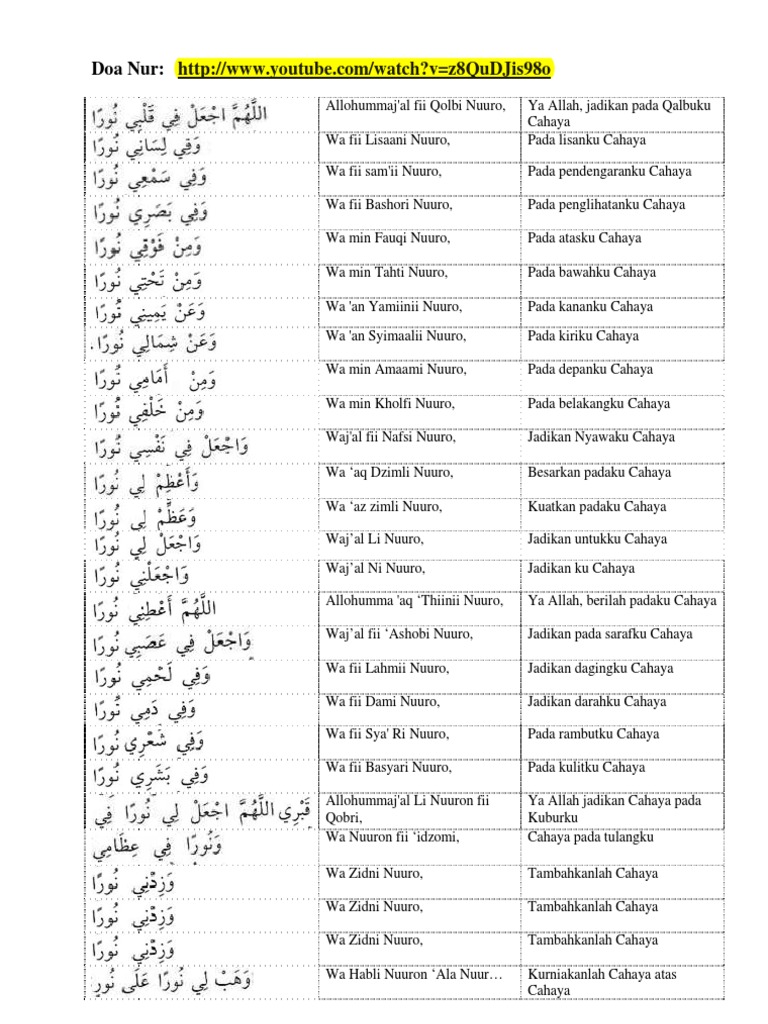 Doa Nur: http://www.youtube.com/watch?v=z8QuDJis98o
اللَّهُمَّ اجْعَلْ فِي قَلْبِي نُورًا Allohummaj'al fii Qolbi Nuuro, Ya Allah, jadikan pada Qalbuku
Cahaya
وَفِي لِسَانِي نُورًا Wa fii Lisaani Nuuro, Pada lisanku Cahaya
وَفِي سَمْعِي نُورًا Wa fii sam'ii Nuuro, Pada pendengaranku Cahaya
وَفِي بَصَرِي نُورًا Wa fii Bashori Nuuro, Pada penglihatanku Cahaya
وَمِنْ فَوْقِي نُورًا Wa min Fauqi Nuuro, Pada atasku Cahaya
وَمِنْ تَحْتِي نُورًا Wa min Tahti Nuuro, Pada bawahku Cahaya
وَعَنْ يَمِينِي نُورًا Wa 'an Yamiinii Nuuro, Pada kananku Cahaya
وَعَنْ شِمَالِي نُورًا. Wa 'an Syimaalii Nuuro, Pada kiriku Cahaya
وَمِنْ أَمَامِي نُورًا Wa min Amaami Nuuro, Pada depanku Cahaya
وَمِنْ خَلْفِي نُورًا Wa min Kholfi Nuuro, Pada belakangku Cahaya
وَاجْعَلْ فِي نَفْسِي نُورًا Waj'al fii Nafsi Nuuro, Jadikan Nyawaku Cahaya
وَأَعْظِمْ لِي نُورًا Wa ‘aq Dzimli Nuuro, Besarkan padaku Cahaya
وَعَظِّمْ لِي نُورًا Wa ‘az zimli Nuuro, Kuatkan padaku Cahaya
وَاجْعَلْ لِي نُورًا Waj’al Li Nuuro, Jadikan untukku Cahaya
وَاجْعَلْنِي نُورًا Waj’al Ni Nuuro, Jadikan ku Cahaya
اللَّهُمَّ أَعْطِنِي نُورًا Allohumma 'aq ‘Thiinii Nuuro, Ya Allah, berilah padaku Cahaya
وَاجْعَلْ فِي عَصَبِي نُورًا Waj’al fii ‘Ashobi Nuuro, Jadikan pada sarafku Cahaya
وَفِي لَحْمِي نُورًا Wa fii Lahmii Nuuro, Jadikan dagingku Cahaya
وَفِي دَمِي نُورًا Wa fii Dami Nuuro, Jadikan darahku Cahaya
وَفِي شَعْرِي نُورًا Wa fii Sya' Ri Nuuro, Pada rambutku Cahaya
وَفِي بَشَرِي نُورًا Wa fii Basyari Nuuro, Pada kulitku Cahaya
قَبْرِي اللَّهُمَّ اجْعَلْ لِي نُورًا فِي Allohummaj'al Li Nuuron fii Ya Allah jadikan Cahaya pada
Qobri, Kuburku
وَنُورًا فِي عِظَامِي Wa Nuuron fii ‘idzomi, Cahaya pada tulangku
وَزِدْنِي نُورًا Wa Zidni Nuuro, Tambahkanlah Cahaya
وَزِدْنِي نُورًا Wa Zidni Nuuro, Tambahkanlah Cahaya
وَزِدْنِي نُورًا Wa Zidni Nuuro, Tambahkanlah Cahaya
وَهَبْ لِي نُورًا عَلَى نُورٍ Wa Habli Nuuron ‘Ala Nuur… Kurniakanlah Cahaya atas
Cahaya